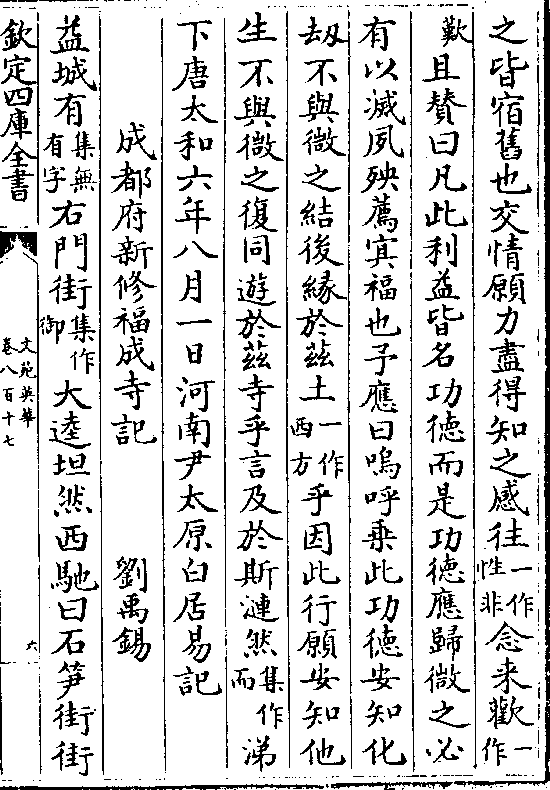 之皆宿舊也交情願力盡得知之感往一作性非念来歡一作
歎且賛曰凡此利益皆名功徳而是功徳應歸微之必
有以滅夙殃薦冥福也予應曰嗚呼乗此功徳安知他
劫不與微之結後緣於兹土一作西方乎因此行願安知他
生不與微之復同遊於兹寺乎言及於斯漣然集作而涕
下唐太和六年八月一日河南尹太原白居易記
成都府新修福成寺記 劉禹錫
益城有集無有字右門街集作御大逵坦然西馳曰石笋街街
欽定四庫全書
文苑英華
卷八百十七
六